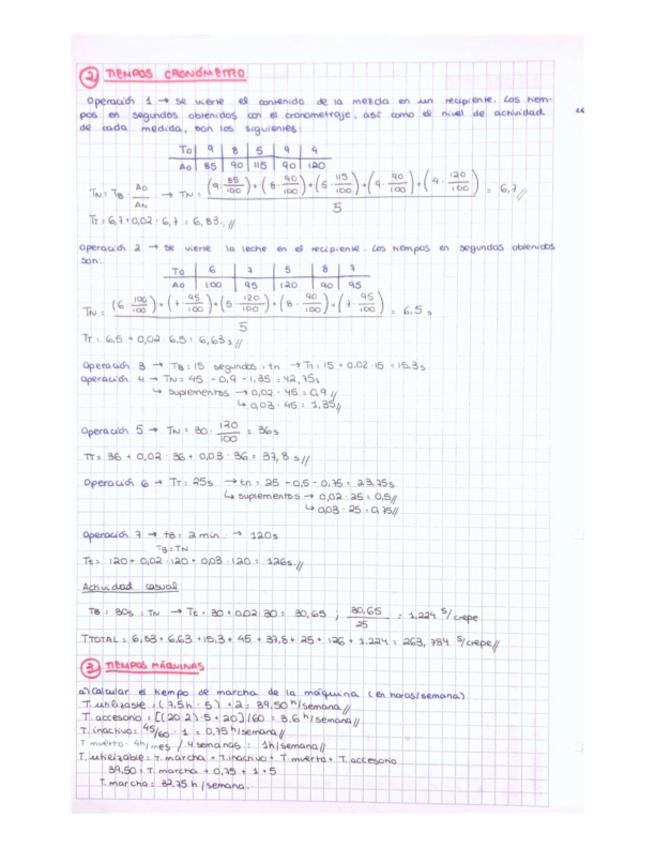 ② TIEMPOS CRONÓMETRO
Operación 1 → se vierte el contenido de la mezcla en un recipiente. Los tiem-
pos en segundos obtenidos con el cronometraje, así como el nivel de actividad
de cada medida, son los siguientes:
To 9 8 5 9 4
Ao 85 90 115 90 120
TN = TB · Ao/An → TN = ((9 · 85/100) + (8 · 90/100) + (5 · 115/100) + (9 · 90/100) + (4 · 120/100)) / 5 = 6,7 //
Tt = 6,7 + 0,02 · 6,7 = 6,83 //
Operación 2 → se vierte la leche en el recipiente. Los tiempos en segundos obtenidos
son:
To 6 7 5 8 7
Ao 100 95 120 90 95
TN = ((6 · 100/100) + (7 · 95/100) + (5 · 120/100) + (8 · 90/100) + (7 · 95/100)) / 5 = 6.5 s
Tt = 6,5 + 0,02 · 6.5 = 6,63s //
Operación 3 → TB = 15 segundos = tn → Tt = 15 + 0.02 · 15 = 15.3s
Operación 4 → TN = 45 - 0,9 - 1,35 = 42,75s
↳ suplementos → 0,02 · 45 = 0,9 //
↳ 0,03 · 45 = 1,35 //
Operación 5 → TN = 30 · 120/100 = 36s
Tt = 36 + 0,02 · 36 + 0,03 · 36 = 37,8 s //
Operación 6 → Tt = 25s → tn = 25 - 0,5 - 0,75 = 23,75s
↳ suplementos → 0,02 · 25 = 0,5 //
↳ 0,03 · 25 = 0,75 //
Operación 7 → tB = 2 min → 120s
TB = TN
Tt = 120 + 0,02 · 120 + 0,03 · 120 = 126s //
Actividad casual
TB = 30s = TN → Tt = 30 + 0,02 · 30 = 30,65 ; 30,65/25 = 1,224 s/crepe
TTOTAL = 6,83 + 6,63 + 15,3 + 45 + 37,8 + 25 + 126 + 1.224 = 263,784 s/crepe //
③ TIEMPOS MÁQUINAS
a) Calcular el tiempo de marcha de la máquina (en horas/semana)
T. utilizable = (7,5h · 5) + 2 = 39,50 h/semana //
T. accesorio = [(20·2) · 5 + 20] / 60 = 3.6 h/semana //
T. inactivo = 45/60 · 1 = 0,75 h/semana //
T muerto = 4h/mes / 4 semanas = 1h/semana //
T. utilizable = T. marcha + T. inactivo + T. muerto + T. accesorio
39,50 = T. marcha + 0,75 + 1 + 5
T. marcha = 32.75 h/semana.